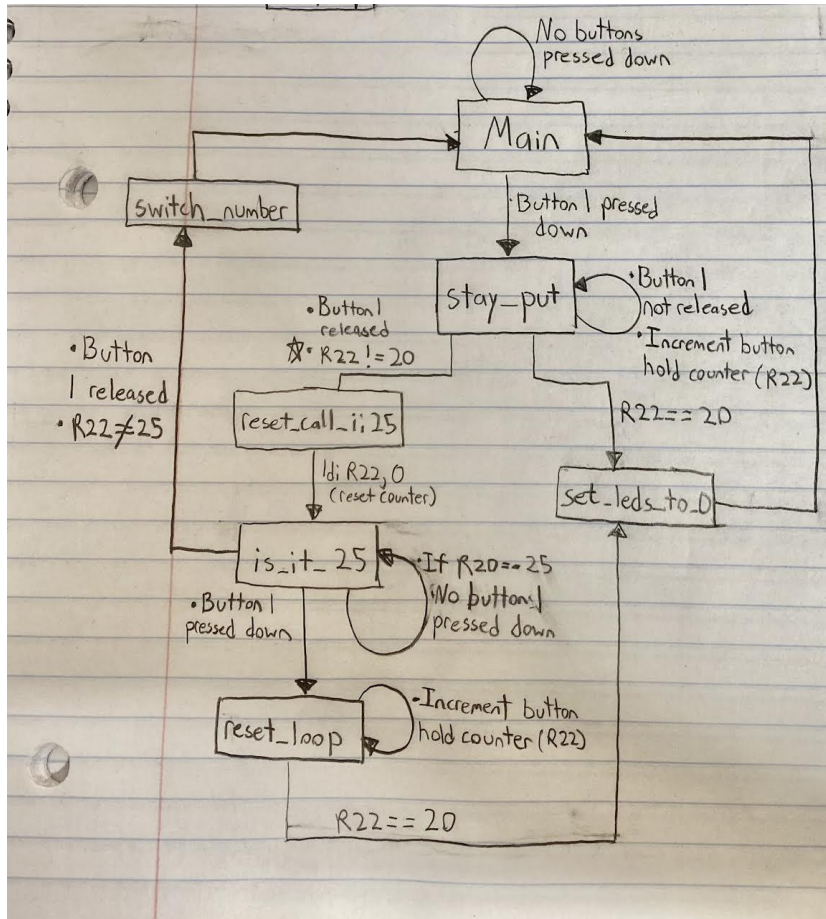 No buttons
pressed down
Main
switch_number
Button 1 pressed
down
stay_put
• Button 1
not released
• Increment button
hold counter (R22)
• Button 1
released
☆• R22 != 20
• Button
1 released
• R22≠25
reset_call_ii25
R22== 20
ldi R22, 0
(reset counter)
set_leds_to_0
is_it_25
• If R20==25
No button 1
pressed down
• Button 1
pressed down
reset_loop
• Increment button
hold counter (R22)
R22== 20